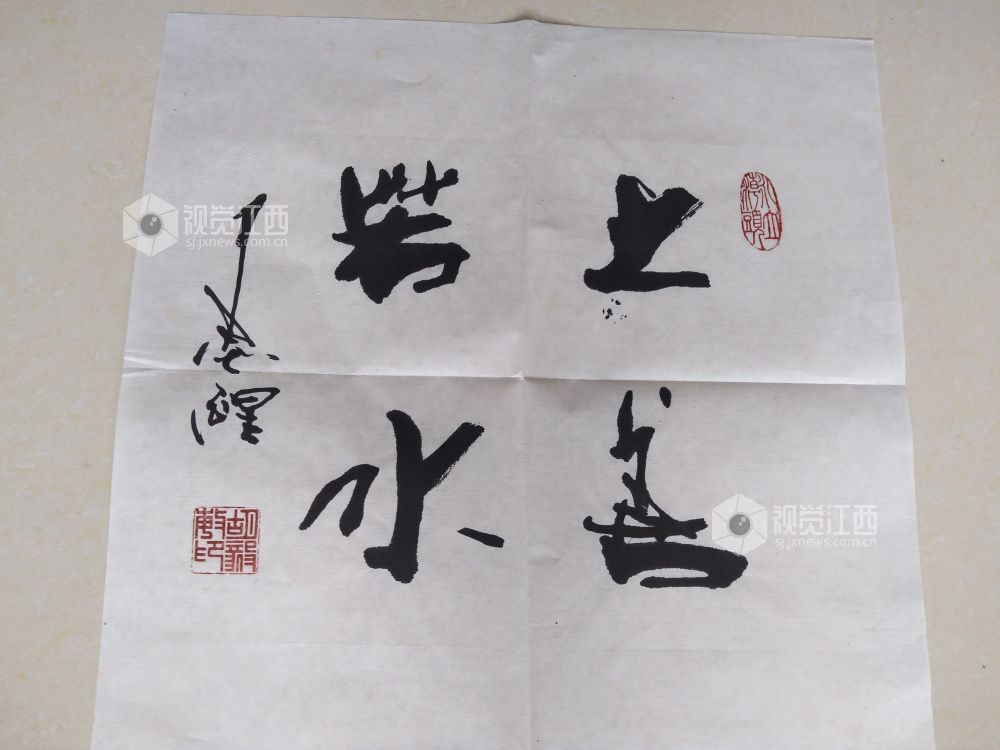 上善
若水
胡毅敏印
视觉江西
sj.jxnews.com.cn
视觉江西
sj.jxnews.com.cn